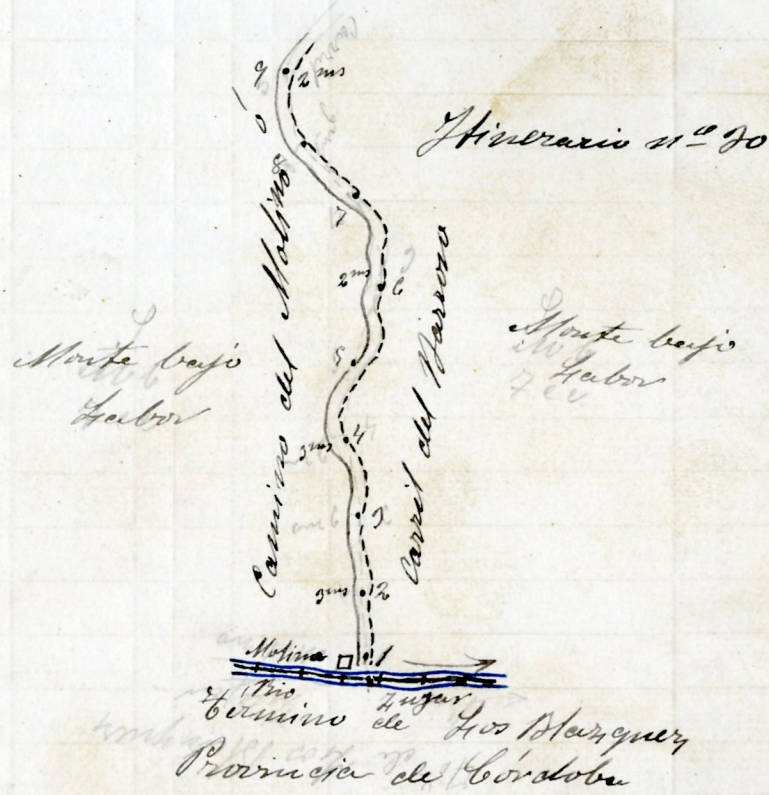 9
2 ms
Itinerario nº 20
Camino del Molino ó
7
2 ms
6
Carril del Barroso
Monte bajo
Labor
Monte bajo
Labor
5
4
3 ms
3
3 ms
2
Molino
1
Rio Zujar
Termino de Los Blazquez
Provincia de Córdoba